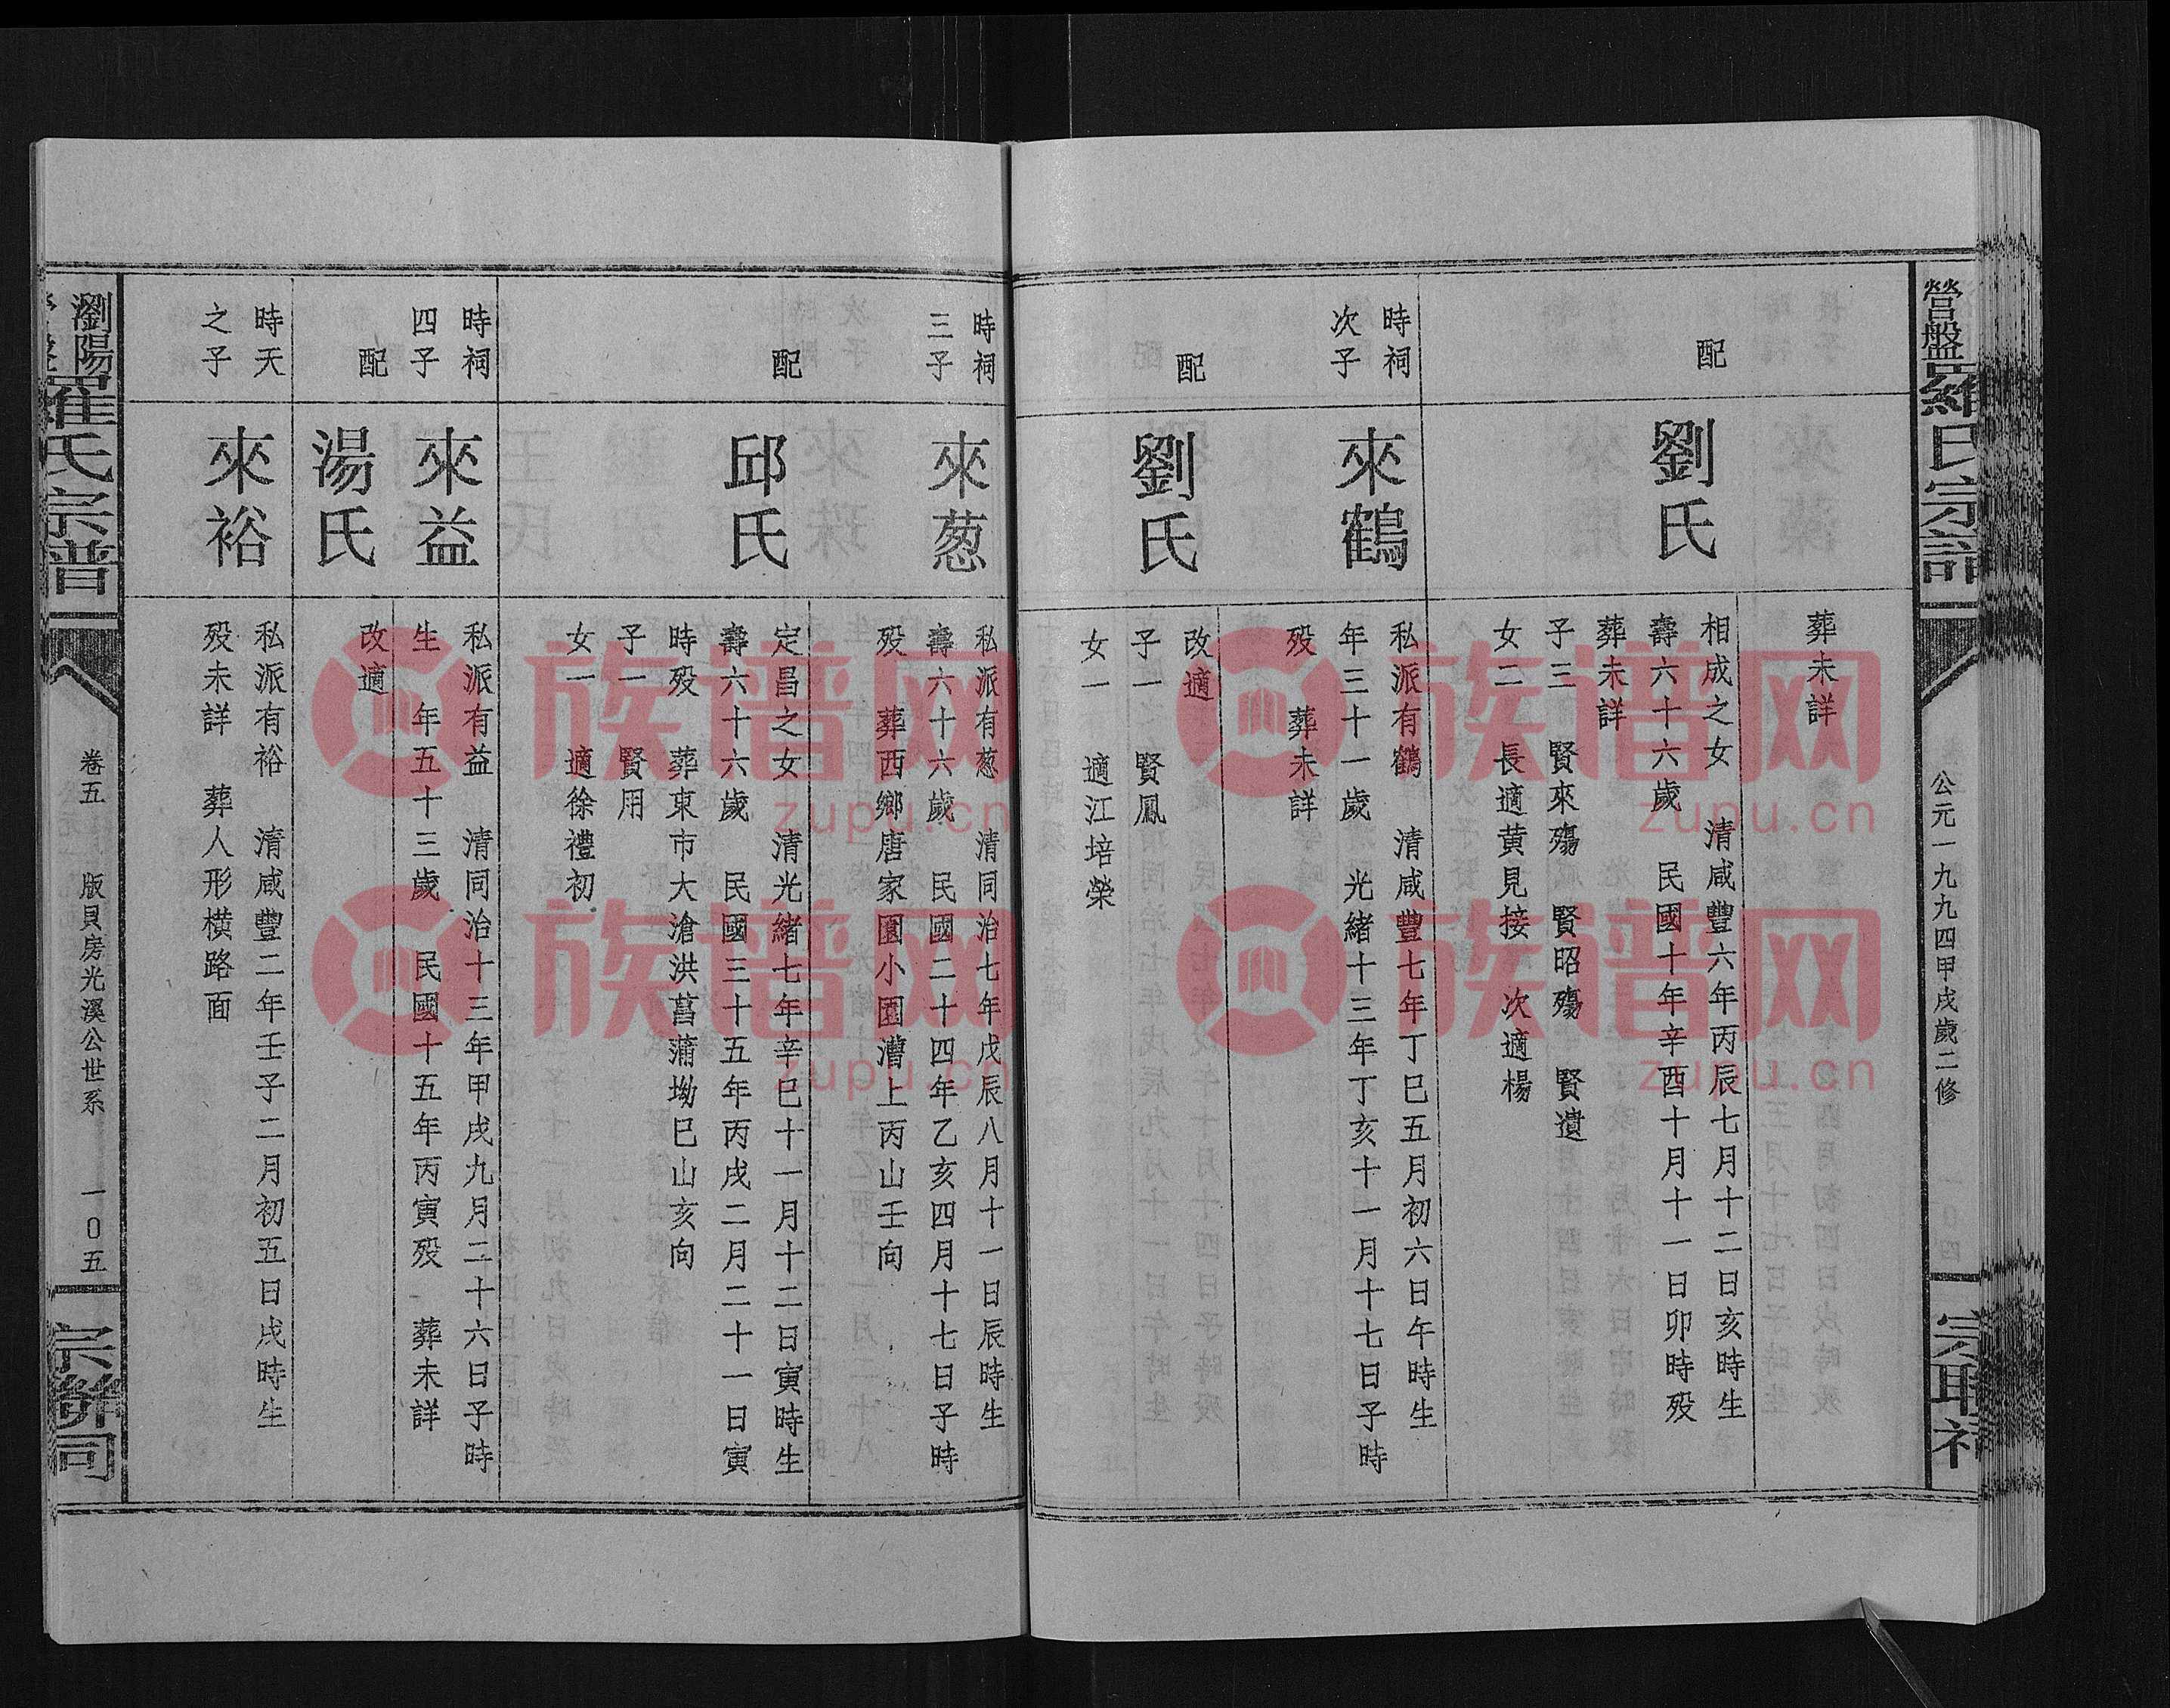 營盤羅氏宗譜
公元一九九四甲戌歲二修
宗聯祠
葬未詳
配
劉氏
相成之女 清咸豐六年丙辰七月十二日亥時生
壽六十六歲 民國十年辛酉十月十一日卯時殁
葬未詳
子三 賢來殤 賢昭殤 賢遺
女二 長適黄見接 次適楊
時祠
次子
來鶴
私派有鶴 清咸豐七年丁巳五月初六日午時生
年三十一歲 光緒十三年丁亥十一月十七日子時
殁 葬未詳
配
劉氏
改適
子一 賢鳳
女一 適江培榮
時祠
三子
來葱
私派有葱 清同治七年戊辰八月十一日辰時生
壽六十六歲 民國二十四年乙亥四月十七日子時
殁 葬西鄉唐家園小園漕上丙山壬向
配
邱氏
定昌之女 清光緒七年辛巳十一月十二日寅時生
壽六十六歲 民國三十五年丙戌二月二十一日寅
時殁 葬東市大滄洪菖蒲坳巳山亥向
子一 賢用
女一 適徐禮初
時祠
四子
來益
私派有益 清同治十三年甲戌九月二十六日子時
生 年五十三歲 民國十五年丙寅殁 葬未詳
配
湯氏
改適
時天
之子
來裕
私派有裕 清咸豐二年壬子二月初五日戌時生
殁未詳 葬人形横路面
瀏陽
營盤羅氏宗普
卷五 版貝房光溪公世系 一0五
宗聯祠
族谱网
zupu.cn
族谱网
zupu.cn
族谱网
zupu.cn
族谱网
zupu.cn